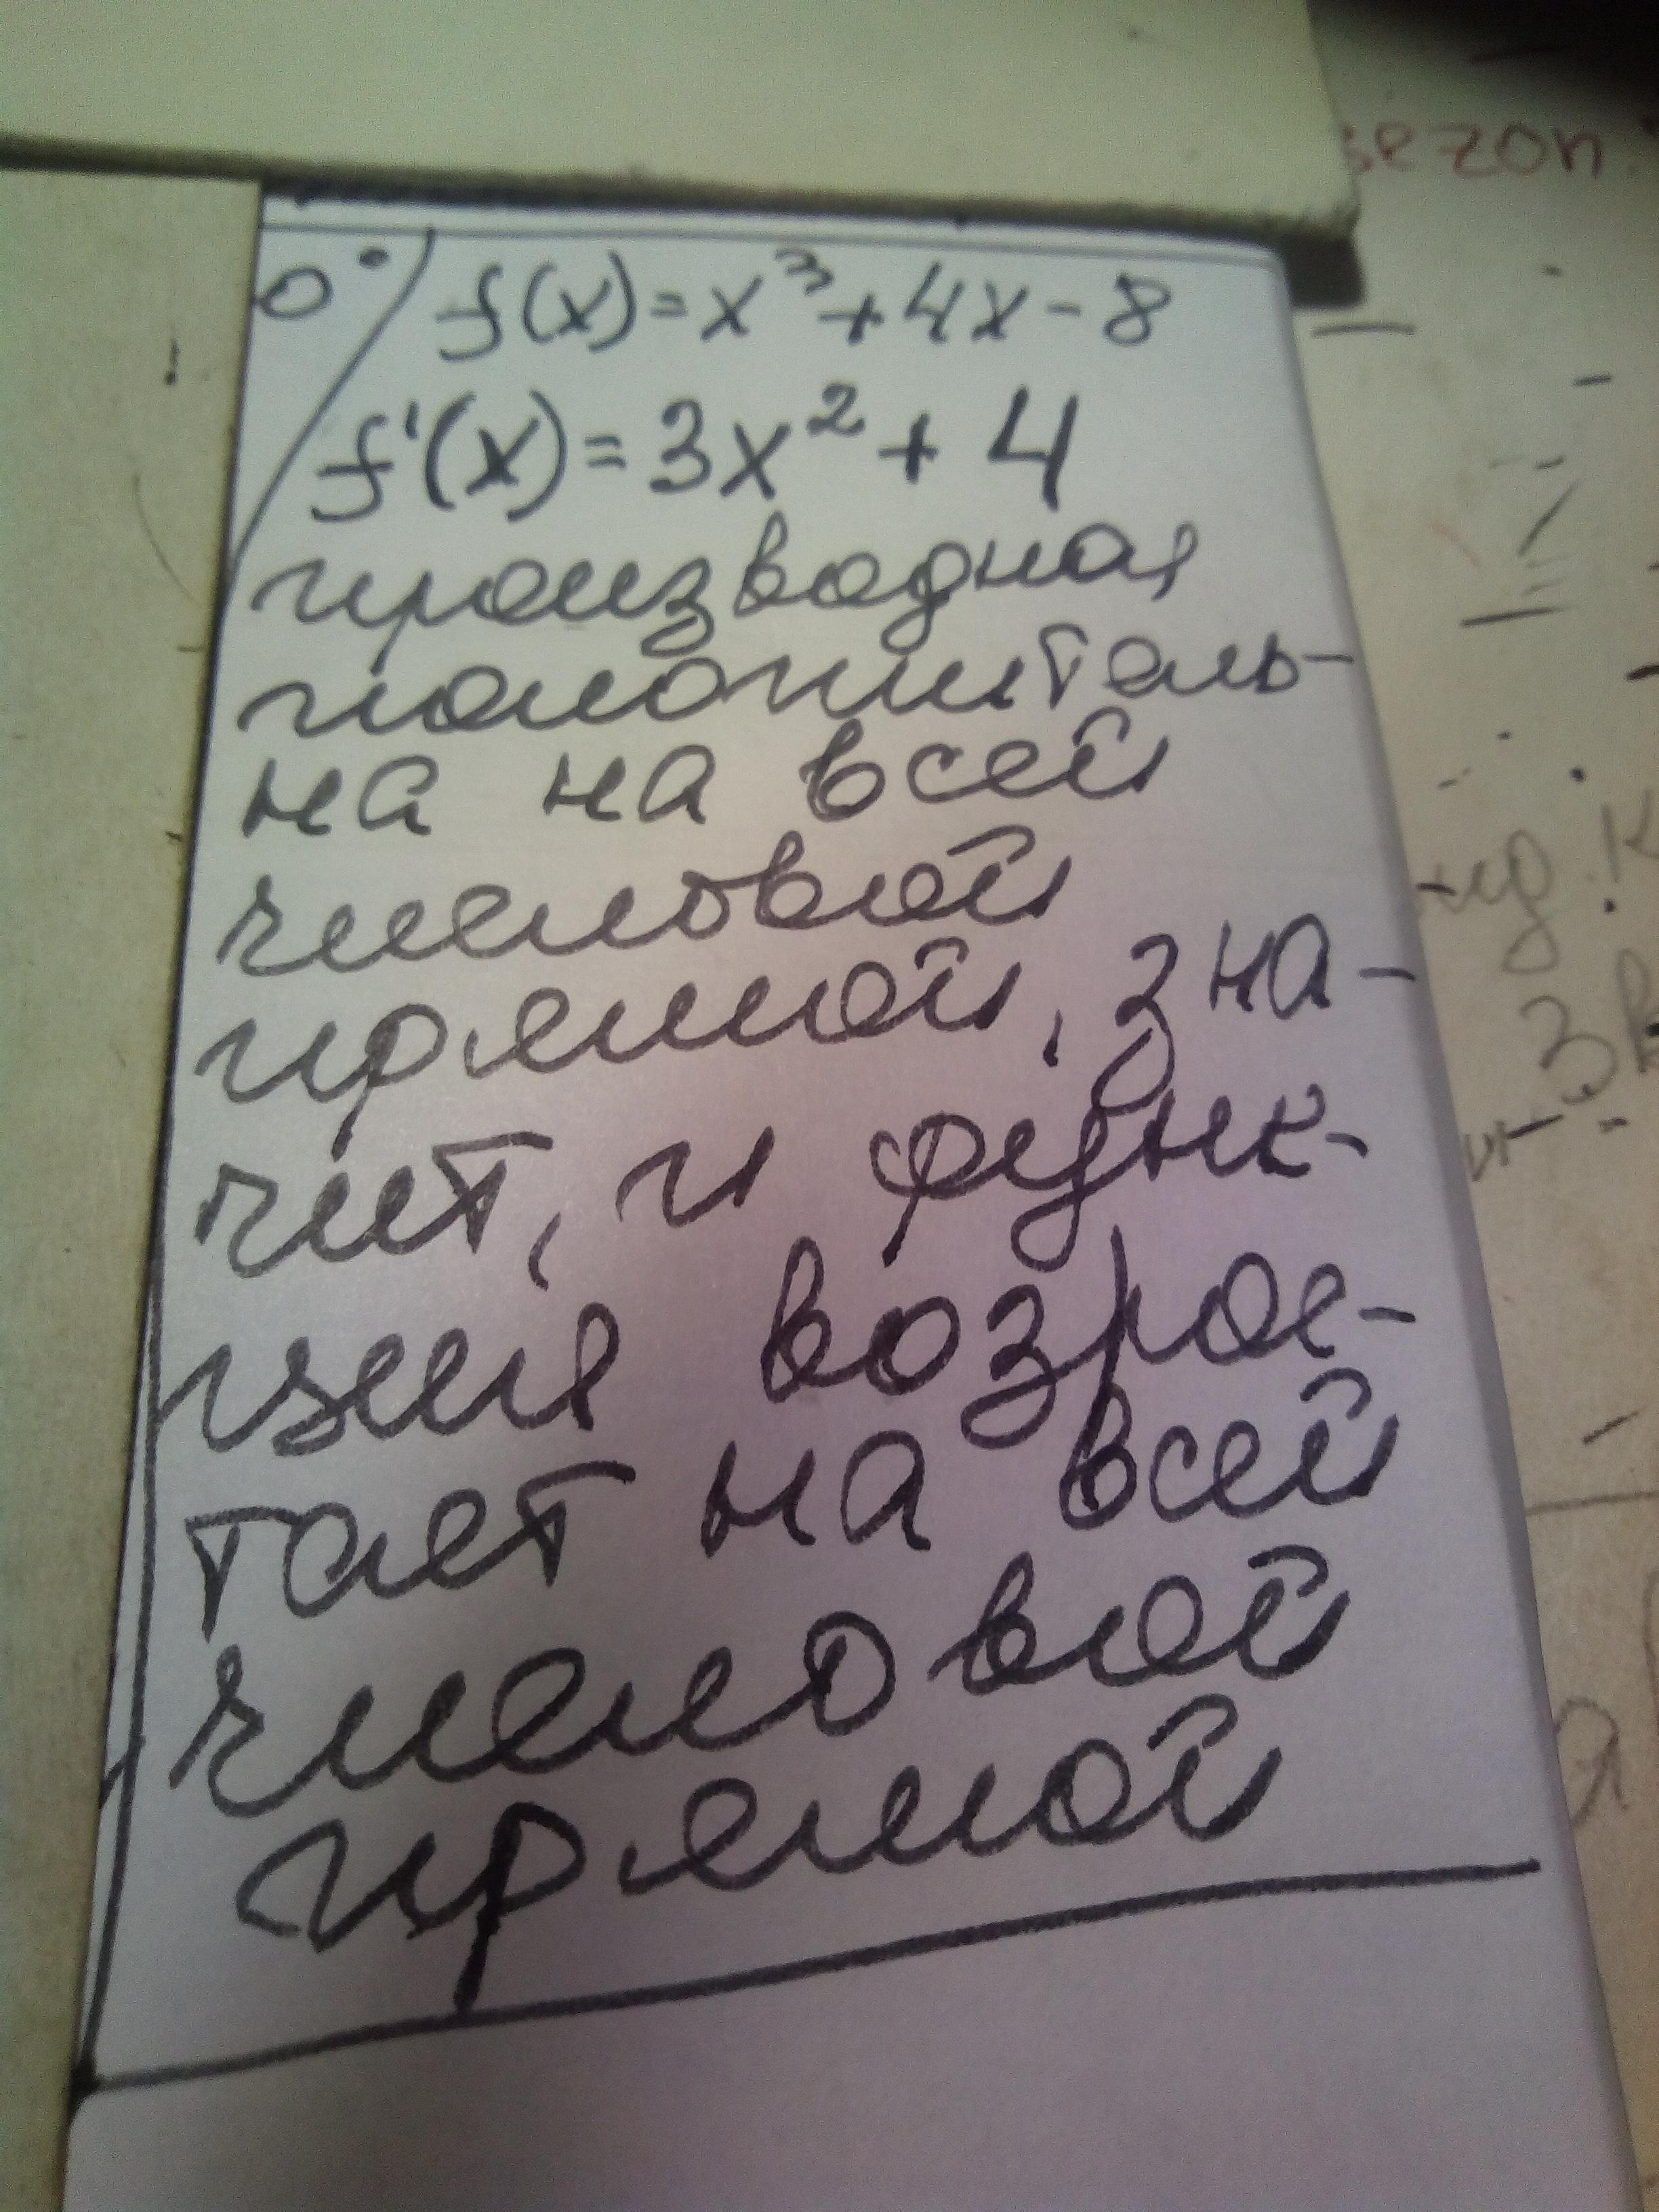 sezon.
f(x)=x³+4x-8
f'(x)=3x²+4
производная
положитель-
на на всей
числовой
прямой, зна-
чит, и функ-
ция возрас-
тает на всей
числовой
прямой